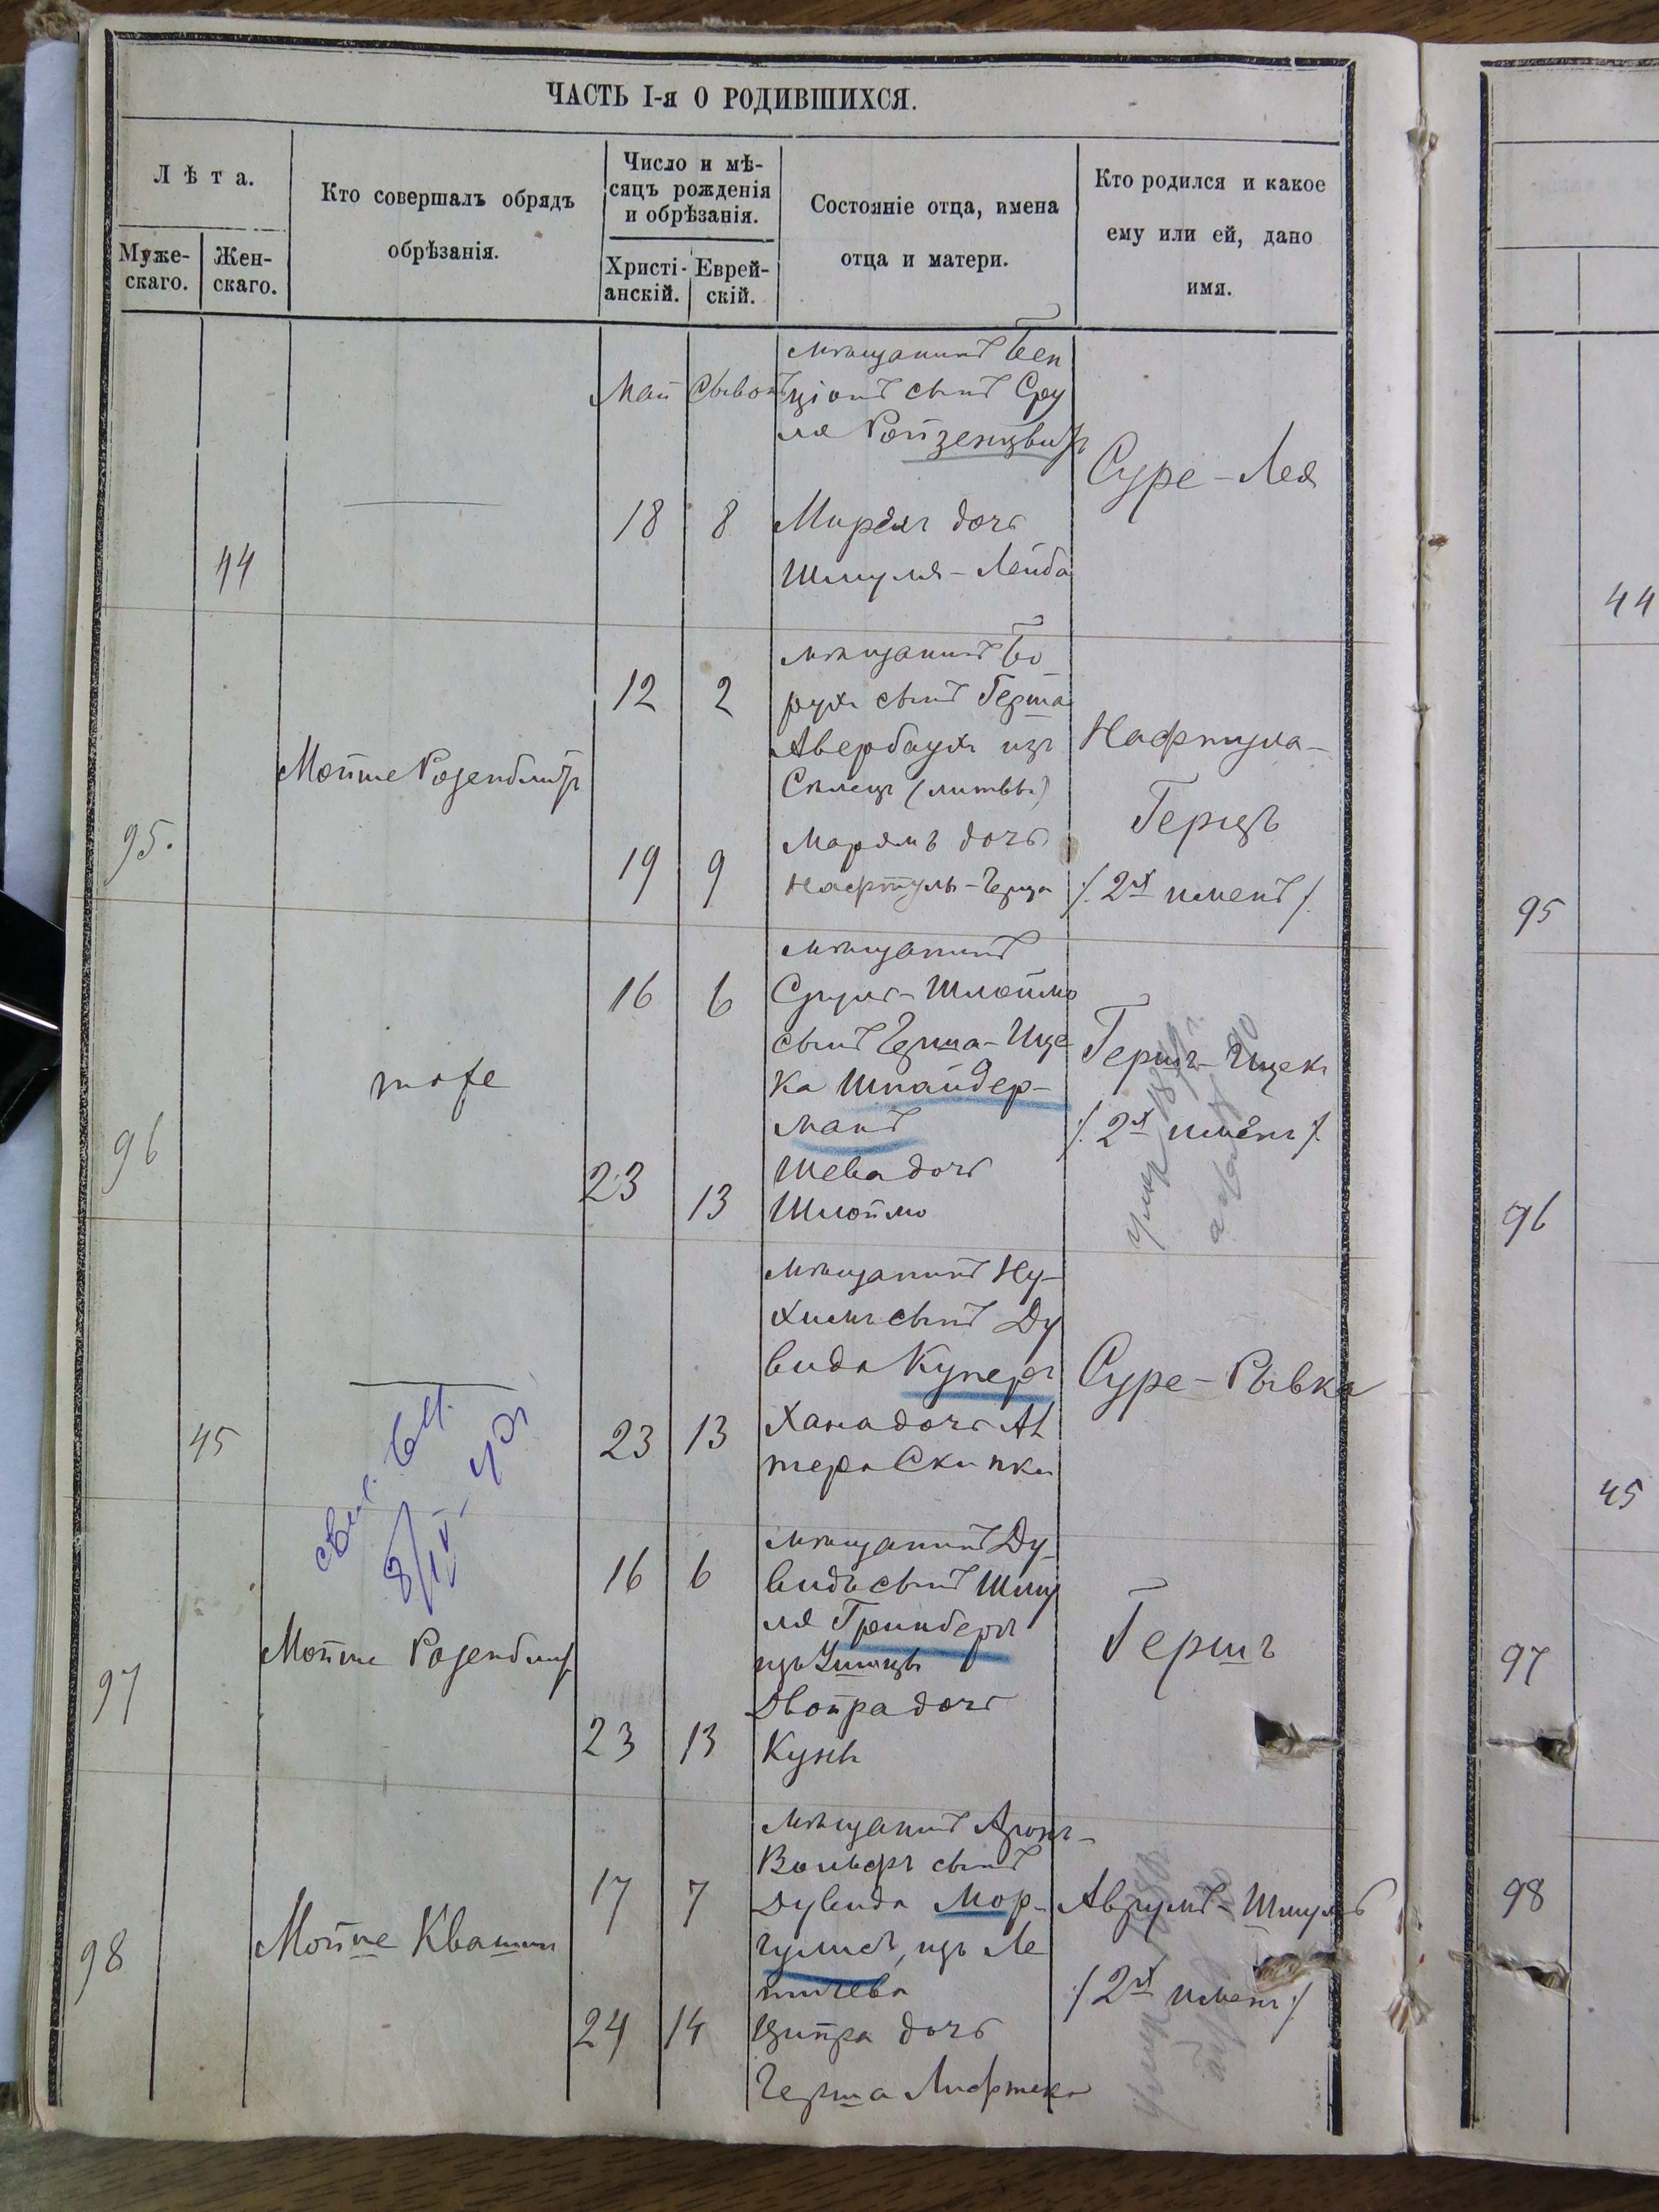 ЧАСТЬ I-я О РОДИВШИХСЯ.
Лѣта.
Муже-
скаго.
Жен-
скаго.
Кто совершалъ обрядъ
обрѣзанія.
Число и мѣ-
сяцъ рожденія
и обрѣзанія.
Христі-
анскій.
Еврей-
скій.
Состояніе отца, имена
отца и матери.
Кто родился и какое
ему или ей, дано
имя.
44
Май
Сывонъ
18
8
мѣщанинъ Бен
ціонъ сынъ Сру
ля Ройзенцвитъ
дочь
Шмуля-Лейба
Суре-Лея
95.
Мойше Розенблитъ
12
2
19
9
мѣщанинъ Бо
рухъ сынъ Герша
Авербаухъ изъ
(литвы)
Марямъ дочь
Нафтуль-Герца
Нафтула-
Герцъ
/. 2хъ именъ /.
96
тоже
16
6
23
13
мѣщанинъ
Сруль-Шлойма
сынъ Герша-Ице
ка Шнайдер-
манъ
Шева дочь
Шлоймо
Гершъ-Ицекъ
/. 2хъ именъ /.
45
23
13
мѣщанинъ Ну-
химъ сынъ Ду
вида Куперъ
Хана дочь Ал
тера Скипки
Суре-Рывка
8/IV-
97
Мойше Розенблит
16
6
23
13
мѣщанинъ Ду-
видъ сынъ Шму
ля Гринбергъ
изъ Ушицы
Двойра дочь
Гершъ
98
Мойше Квашин
17
7
24
14
мѣщанинъ Аронъ-
Вольфъ сынъ
Дувида Мор-
гулисъ, изъ Ле
тичева
Ципра дочь
Герша
Аврумъ-Шмуль
/. 2хъ именъ /.
44
95
96
45
97
98